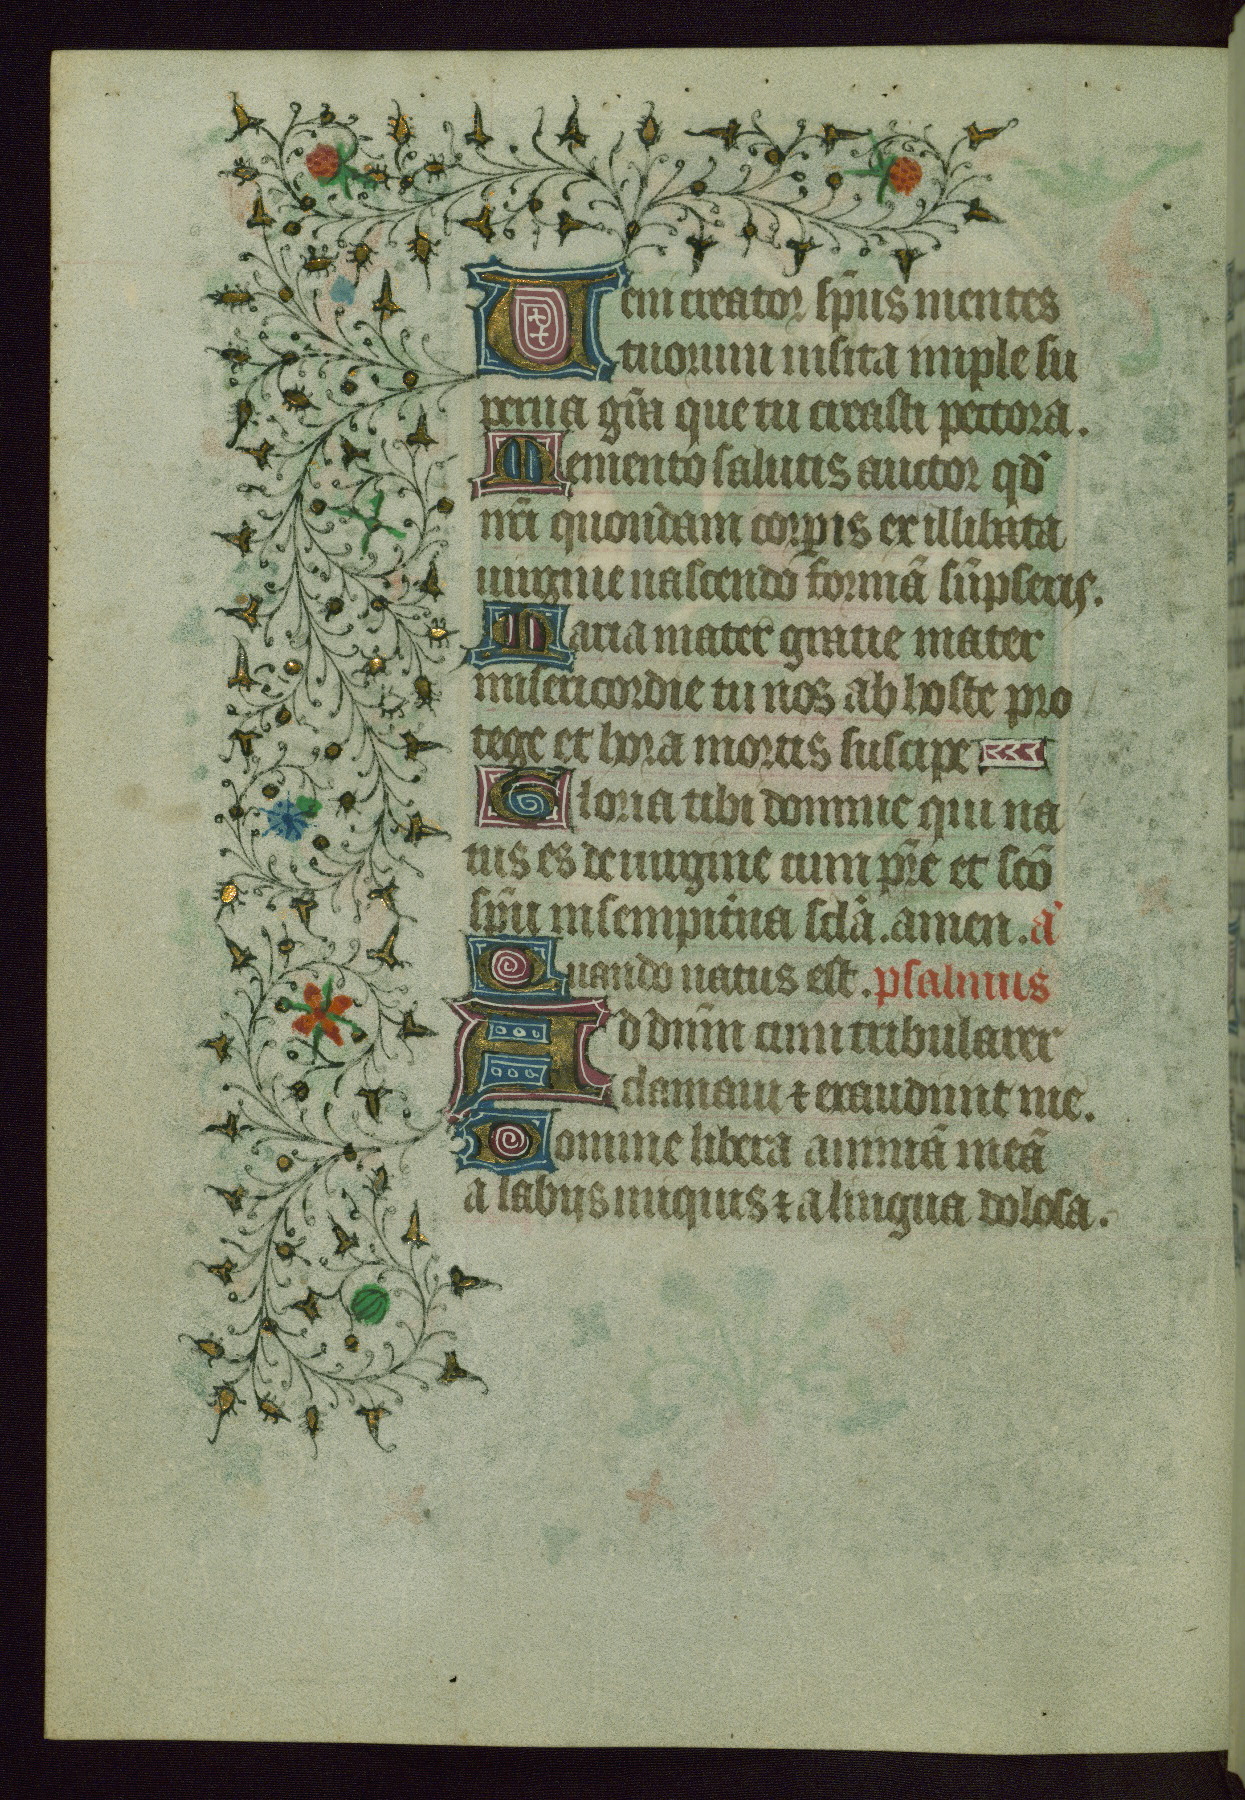 Ueni creator sp̄us mentes
tuorum uisita imple su
perna gr̄a que tu creasti pectora.
Memento salutis auctor qd̾
nr̄i quondam corpis ex illibata
uirgine nascendo formā sūpseris.
Maria mater gratie mater
misericordie tu nos ab hoste pro
tege et hora mortis suscipe
Gloria tibi domine qui na
tus es de uirgine cum pr̄e et sc̄o
sp̄u in sempit̾na sc̄la. amen. a̾
Quando natus est. psalmus
Ad dn̄m cum tribularer
clamaui ⁊ exaudiuit me.
Domine libera animā meā
a labijs iniquis ⁊ a lingua dolosa.